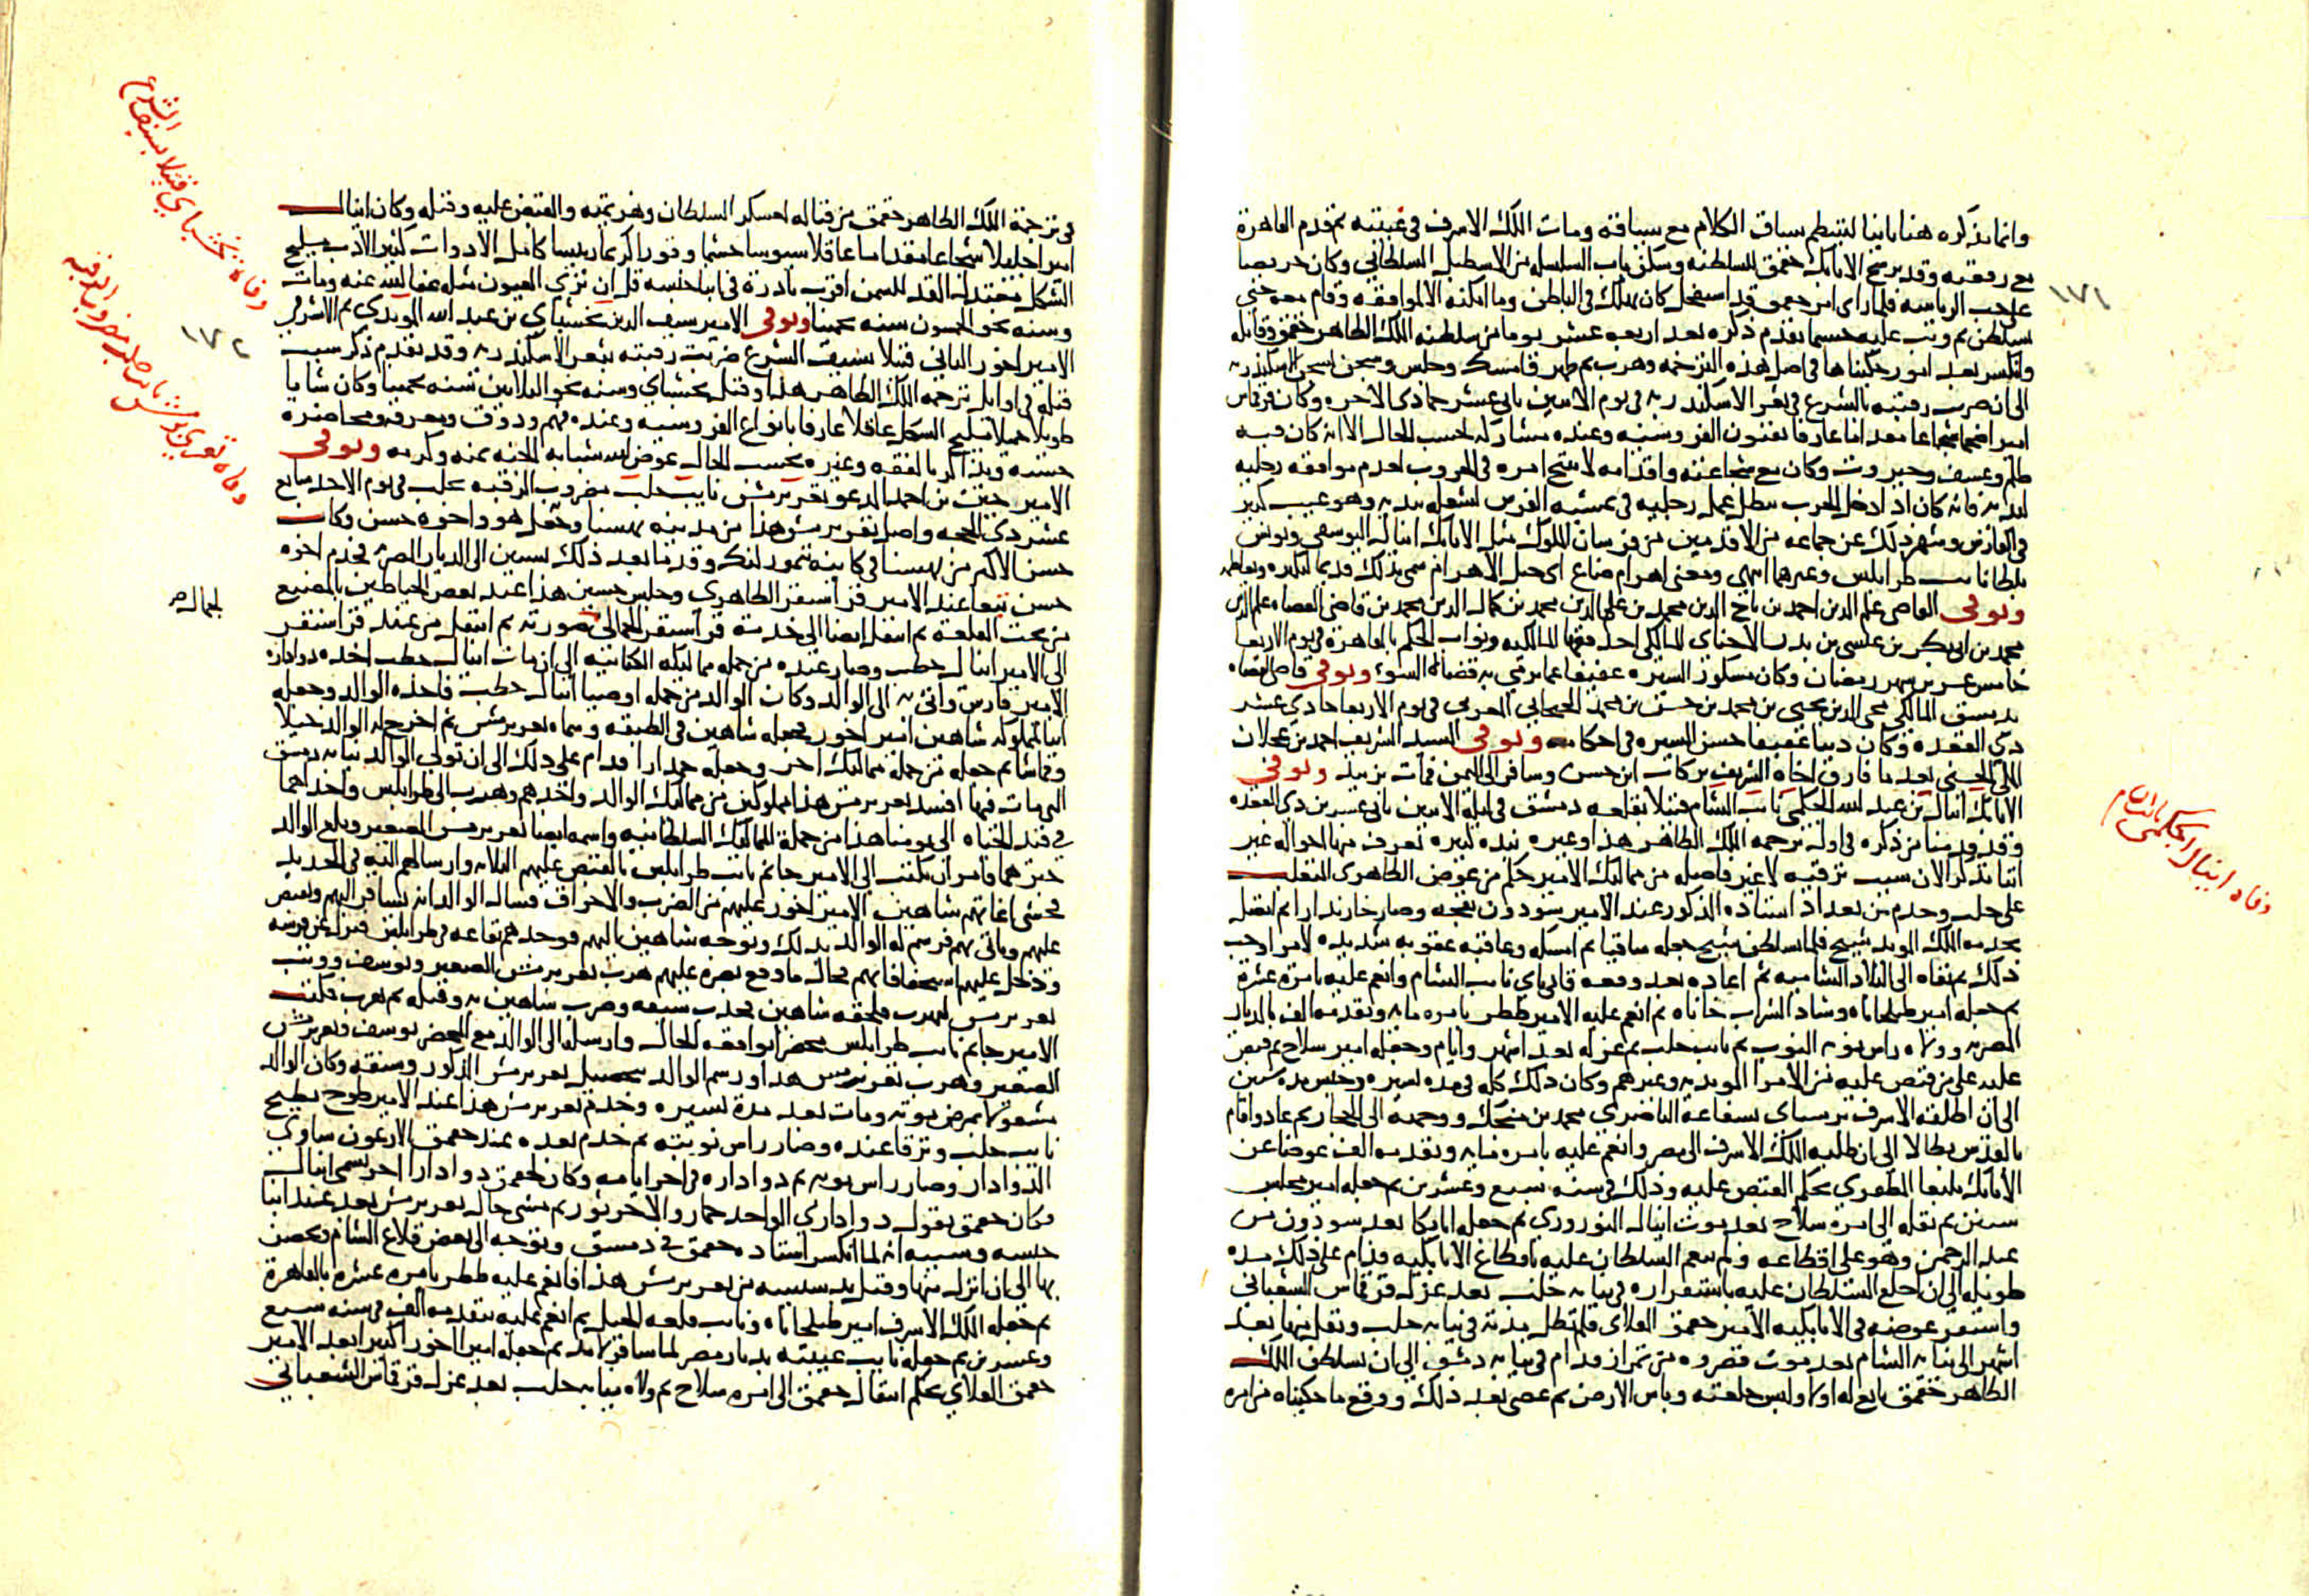 وانما نذكره هنا ثانيا لينتظم سياق الكلام مع سياقته ومات الملك الاشرف في غيبته ثم قدم القاهرة
مع رفقته وقد ترشح الاتابك جقمق للسلطنه وسكن باب السلسله من الاسطبل السلطاني وكان حريصا
على حب الرياسه فلما راى امر جقمق قد استفحل كان يهلك في الباطن وما امكنه الا الموافقه وقام معه حتى
تسلطن ثم وثب عليه حسبما تقدم ذكره بعد اربعه عشر يوما من سلطنه الملك الظاهر جقمق وقاتله
وانكسر بعد امور حكيناها في اصل هذه الترجمه وهرب ثم ظهر فامسك وحبس وسجن بسجن الاسكندريه
الى ان ضربت رقبته بالشرع في ثغر الاسكندريه في يوم الاثنين ثاني عشر جمادى الاخره وكان قرقماس
اميرا ضخما شجاعا مقداما عارفا بفنون الفروسيه وعنده مشاركه بحسب الحال الا انه كان فيه
ظلم وعسف وجبروت وكان مع شجاعته واقدامه لا ينتج امره في الحروب لعدم موافقه رجليه
ليديه فانه كان اذا دخل الحرب يبطل عمل رجليه في تمشيه الفرس لشغله بيديه وهو عيب كبير
في الفارس وشهر ذلك عن جماعه من الاقدمين من فرسان الملوك مثل الاتابك اينال اليوسفي ويونس
بلطا نائب طرابلس وغيرهما انتهى ومعنى اهرام ضاغ اى جبل الاهرام سمى بذلك قديما لتكبره وتعاظمه
وتوفي القاضي علم الدين احمد بن تاج الدين محمد بن علم الدين محمد بن كمال الدين محمد بن قاضي القضاه علم الدين
محمد بن ابي بكر بن عيسى بن بدران الاخناي المالكي احد فقها المالكيه ونواب الحكم بالقاهرة في يوم الاربعا
خامس عشر شهر رمضان وكان مشكور السيره عفيفا عما يرمى به قضاة السوء وتوفي قاضي القضاه
بدمشق المالكي محي الدين يحيى بن محمد بن حسن بن محمد الحيحاني المغربي في يوم الاربعا حادي عشر
ذي القعده وكان دينا عفيفا حسن السيره في احكامه وتوفي السيد الشريف احمد بن عجلان
المكي الحسني بعد ما فارق اخاه الشريف بركات ابن حسن وسافر الى اليمن فمات بزبيد وتوفي
الاتابك اينال بن عبد الله الجكمي نائب الشام قتيلا بقلعه دمشق في ليلة الاثنين ثاني عشرين ذي القعده
وقد قدمنا من ذكره في اوله ترجمه الملك الظاهر هذا وغيره نبذه كبيره تعرف منها احواله غير
اننا نذكر الان سبب ترقيه لا غير فاصله من مماليك الامير جكم من عوض الظاهري المتغلب
على حلب وخدم من بعد استاذه المذكور عند الامير سودون بقجه وصار خازندارا ثم اتصل
بخدمه الملك المويد شيخ فلما تسلطن شيخ جعله ساقيا ثم امسكه وعاقبه عقوبه شديده لامر اوجب
ذلك ثم نفاه الى البلاد الشاميه ثم اعاده بعد وقعه قاني باي نائب الشام وانعم عليه بامرة عشرة
ثم جعله امير طبلخاناه وشاد الشراب خاناه ثم انعم عليه الامير ططر بامره مايه وتقدمه الف بالديار
المصريه وولاه راس نوبه النوب ثم نائب حلب ثم عزله بعد اشهر وايام وجعله امير سلاح ثم قبض
عليه على من قبض عليه من الامرا المويديه وغيرهم وكان ذلك كله في مده يسيره وحبس مده سنين
الى ان اطلقه الاشرف برسباي بشفاعة الناصري محمد بن منجك ووجهه الى الحجاز ثم عاد واقام
بالقدس بطالا الى ان طلبه الملك الاشرف الى مصر وانعم عليه بامره مايه وتقدمه الف عوضا عن
الاتابك بيبغا المظفري بحكم القبض عليه وذلك في سنه سبع وعشرين ثم جعله امير مجلس
سنين ثم نقله الى امرة سلاح بعد موت اينال النوروزي ثم جعله اتابكا بعد سودون من
عبد الرحمن وهو على اقطاعه ولم ينعم السلطان عليه باقطاع الاتابكيه ودام على ذلك مده
طويله الى ان خلع السلطان عليه باستقراره في نيابه حلب بعد عزل قرقماس الشعباني
واستقر عوضه في الاتابكيه الامير جقمق العلاى فلم تطل مدته في نيابه حلب ونقل منها بعد
اشهر الى نيابه الشام بعد موت قصروه من تمراز فدام في نيابه دمشق الى ان تسلطن الملك
الظاهر جقمق بايع له اولا ولبس خلعته وباس الارض ثم عصى بعد ذلك ووقع ما حكيناه من امره
١٧١
وفاه اينال الجكمي نائب الشام
في ترجمة الملك الظاهر جقمق من قتاله لعسكر السلطان وهزيمته والقبض عليه وقتله وكان اينال
اميرا جليلا شجاعا مقداما عاقلا سيوسا حشما وقورا كريما رييسا كامل الادوات كثير الادب مليح
الشكل معتدل القد للسمن اقرب نادرة في ابنا جنسه قل ان ترى العيون مثله عفا الله عنه ومات
وسنه نحو الخمسون سنه تخمينا وتوفي الامير سيف الدين يخشباي بن عبد الله المويدي ثم الاشرفي
الامير اخور الثاني قتيلا بسيف الشرع ضربت رقبته بثغر الاسكندريه وقد تقدم ذكر سبب
قتله في اوايل ترجمه الملك الظاهر هذا وقتل يخشباي وسنه نحو الثلاثين سنه تخمينا وكان شابا
طويلا جميلا مليح الشكل عاقلا عارفا بانواع الفروسيه وعنده فهم وذوق ومعرفه ومحاضره
حسنه ويذاكر بالفقه وغيره بحسب الحال عوض الله شبابه الجنه بمنه وكرمه وتوفي
الامير حسين بن احمد المدعو تغري برمش نائب حلب مضروب الرقبه بحلب في يوم الاحد سابع
عشر ذي الحجه واصل تغري برمش هذا من مدينه بهسنا وجفل هو واخوه حسن وكان
حسن الاكبر من بهسنا في كاينه تمورلنك وقدما بعد ذلك بسنين الى الديار المصريه فخدم اخوه
حسن تبعا عند الامير قرا سنقر الظاهري وجلس حسين هذا عند بعض الخياطين بالمصنع
من تحت القلعه ثم انتقل ايضا الى خدمة قرا سنقر الجمالى لصورته ثم انتقل من عند قرا سنقر
الى الامير اينال حطب وصار عنده من جمله مماليكه الكتابيه الى ان مات اينال حطب اخذه دواداره
الامير فارس واتى به الى الوالد وكان الوالد من جمله اوصيا اينال حطب فاخذه الوالد وجعله
انيا لمملوكه شاهين امير اخور فجعله شاهين في الطبقه وسماه تغري برمش ثم اخرج له الوالد خيلا
وقماشا ثم جعله من جملة مماليك اخر وجعله جمدارا فدام على ذلك الى ان تولى الوالد نيابه دمشق
التي مات فيها افسد تغري برمش هذا مملوكين من مماليك الوالد واخذهم وهرب الى طرابلس واحدهما
في قيد الحياه الى يومنا هذا من جملة المماليك السلطانيه واسمه ايضا تغري برمش الصغير وبلغ الوالد
خبرهما فامر ان يكتب الى الامير جانم نائب طرابلس بالقبض عليهم الثلاثه وارسالهم اليه في الحديد
فخشى اغاتهم شاهين الامير اخور عليهم من الضرب والاخراق فسال الوالد ان يسافر اليهم ويقبض
عليهم وياتي بهم فرسم له الوالد بذلك وتوجه شاهين اليهم فوجدهم بقاعه في طرابلس فنزل عن فرسه
ودخل عليهم استخفافا بهم فحال ما وقع بصره عليهم هرب تغري برمش الصغير ويوسف ووثب
تغري برمش ليهرب فلحقه شاهين فجذب سيفه وضرب شاهين به وقتله ثم هرب فكتب
الامير جانم نائب طرابلس محضرا بواقعه الحال وارسله الى الوالد مع المحضر يوسف وتغري برمش
الصغير وهرب تغري برمش هذا ورسم الوالد بتحصيل تغري برمش المذكور وشنقه وكان الوالد
مشغولا بمرض موته ومات بعد مدة يسيره وخدم تغري برمش هذا عند الامير طوخ بطيخ
نايب حلب وترقا عنده وصار راس نوبته ثم خدم بعده عند جقمق الارغون شاوي
الدوادار وصار راس نوبه ثم دواداره في اخر ايامه وكان لجقمق دوادارا اخر يسمى اينال
وكان جقمق يقول دواداري الواحد حمار والاخر ثور ثم مشى حال تغري برمش بعد عند ابنا
جنسه وسببه انه لما انكسر استاده جقمق في دمشق وتوجه الى بعض قلاع الشام وتحصن
بها الى ان انزل منها وقتل بدسيسه من تغري برمش هذا فانعم عليه ططر بامره عشره بالقاهرة
ثم جعله الملك الاشرف امير طبلخاناه ونائب قلعه الجبل ثم انعم عليه بتقدمه الف في سنه سبع
وعشرين ثم جعله نايب غيبته بديار مصر لما سافر لامد ثم جعله اميرا اخور كبيرا بعد الامير
جقمق العلاي بحكم انتقال جقمق الى امره سلاح ثم ولاه نيابه حلب بعد عزل قرقماس الشعباني
وفاة يخشباي قتيلا بسيف الشرع
١٧٢
وفاه تغري برمش نائب حلب مضروب الرقبه
الجمالى صح